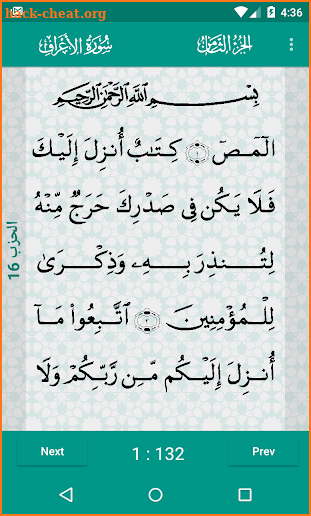 hack-cheat.org
4:36
الجزء الثامن
سُورَةُ الأَعْرَافِ
بِسْمِ اللَّهِ الرَّحْمَٰنِ الرَّحِيمِ
الٓمٓصٓ ١ كِتَٰبٌ أُنزِلَ إِلَيْكَ
فَلَا يَكُن فِى صَدْرِكَ حَرَجٌ مِّنْهُ
لِتُنذِرَ بِهِۦ وَذِكْرَىٰ
لِلْمُؤْمِنِينَ ٢ ٱتَّبِعُوا۟ مَآ
أُنزِلَ إِلَيْكُم مِّن رَّبِّكُمْ وَلَا
الحزب 16
Next
1 : 132
Prev